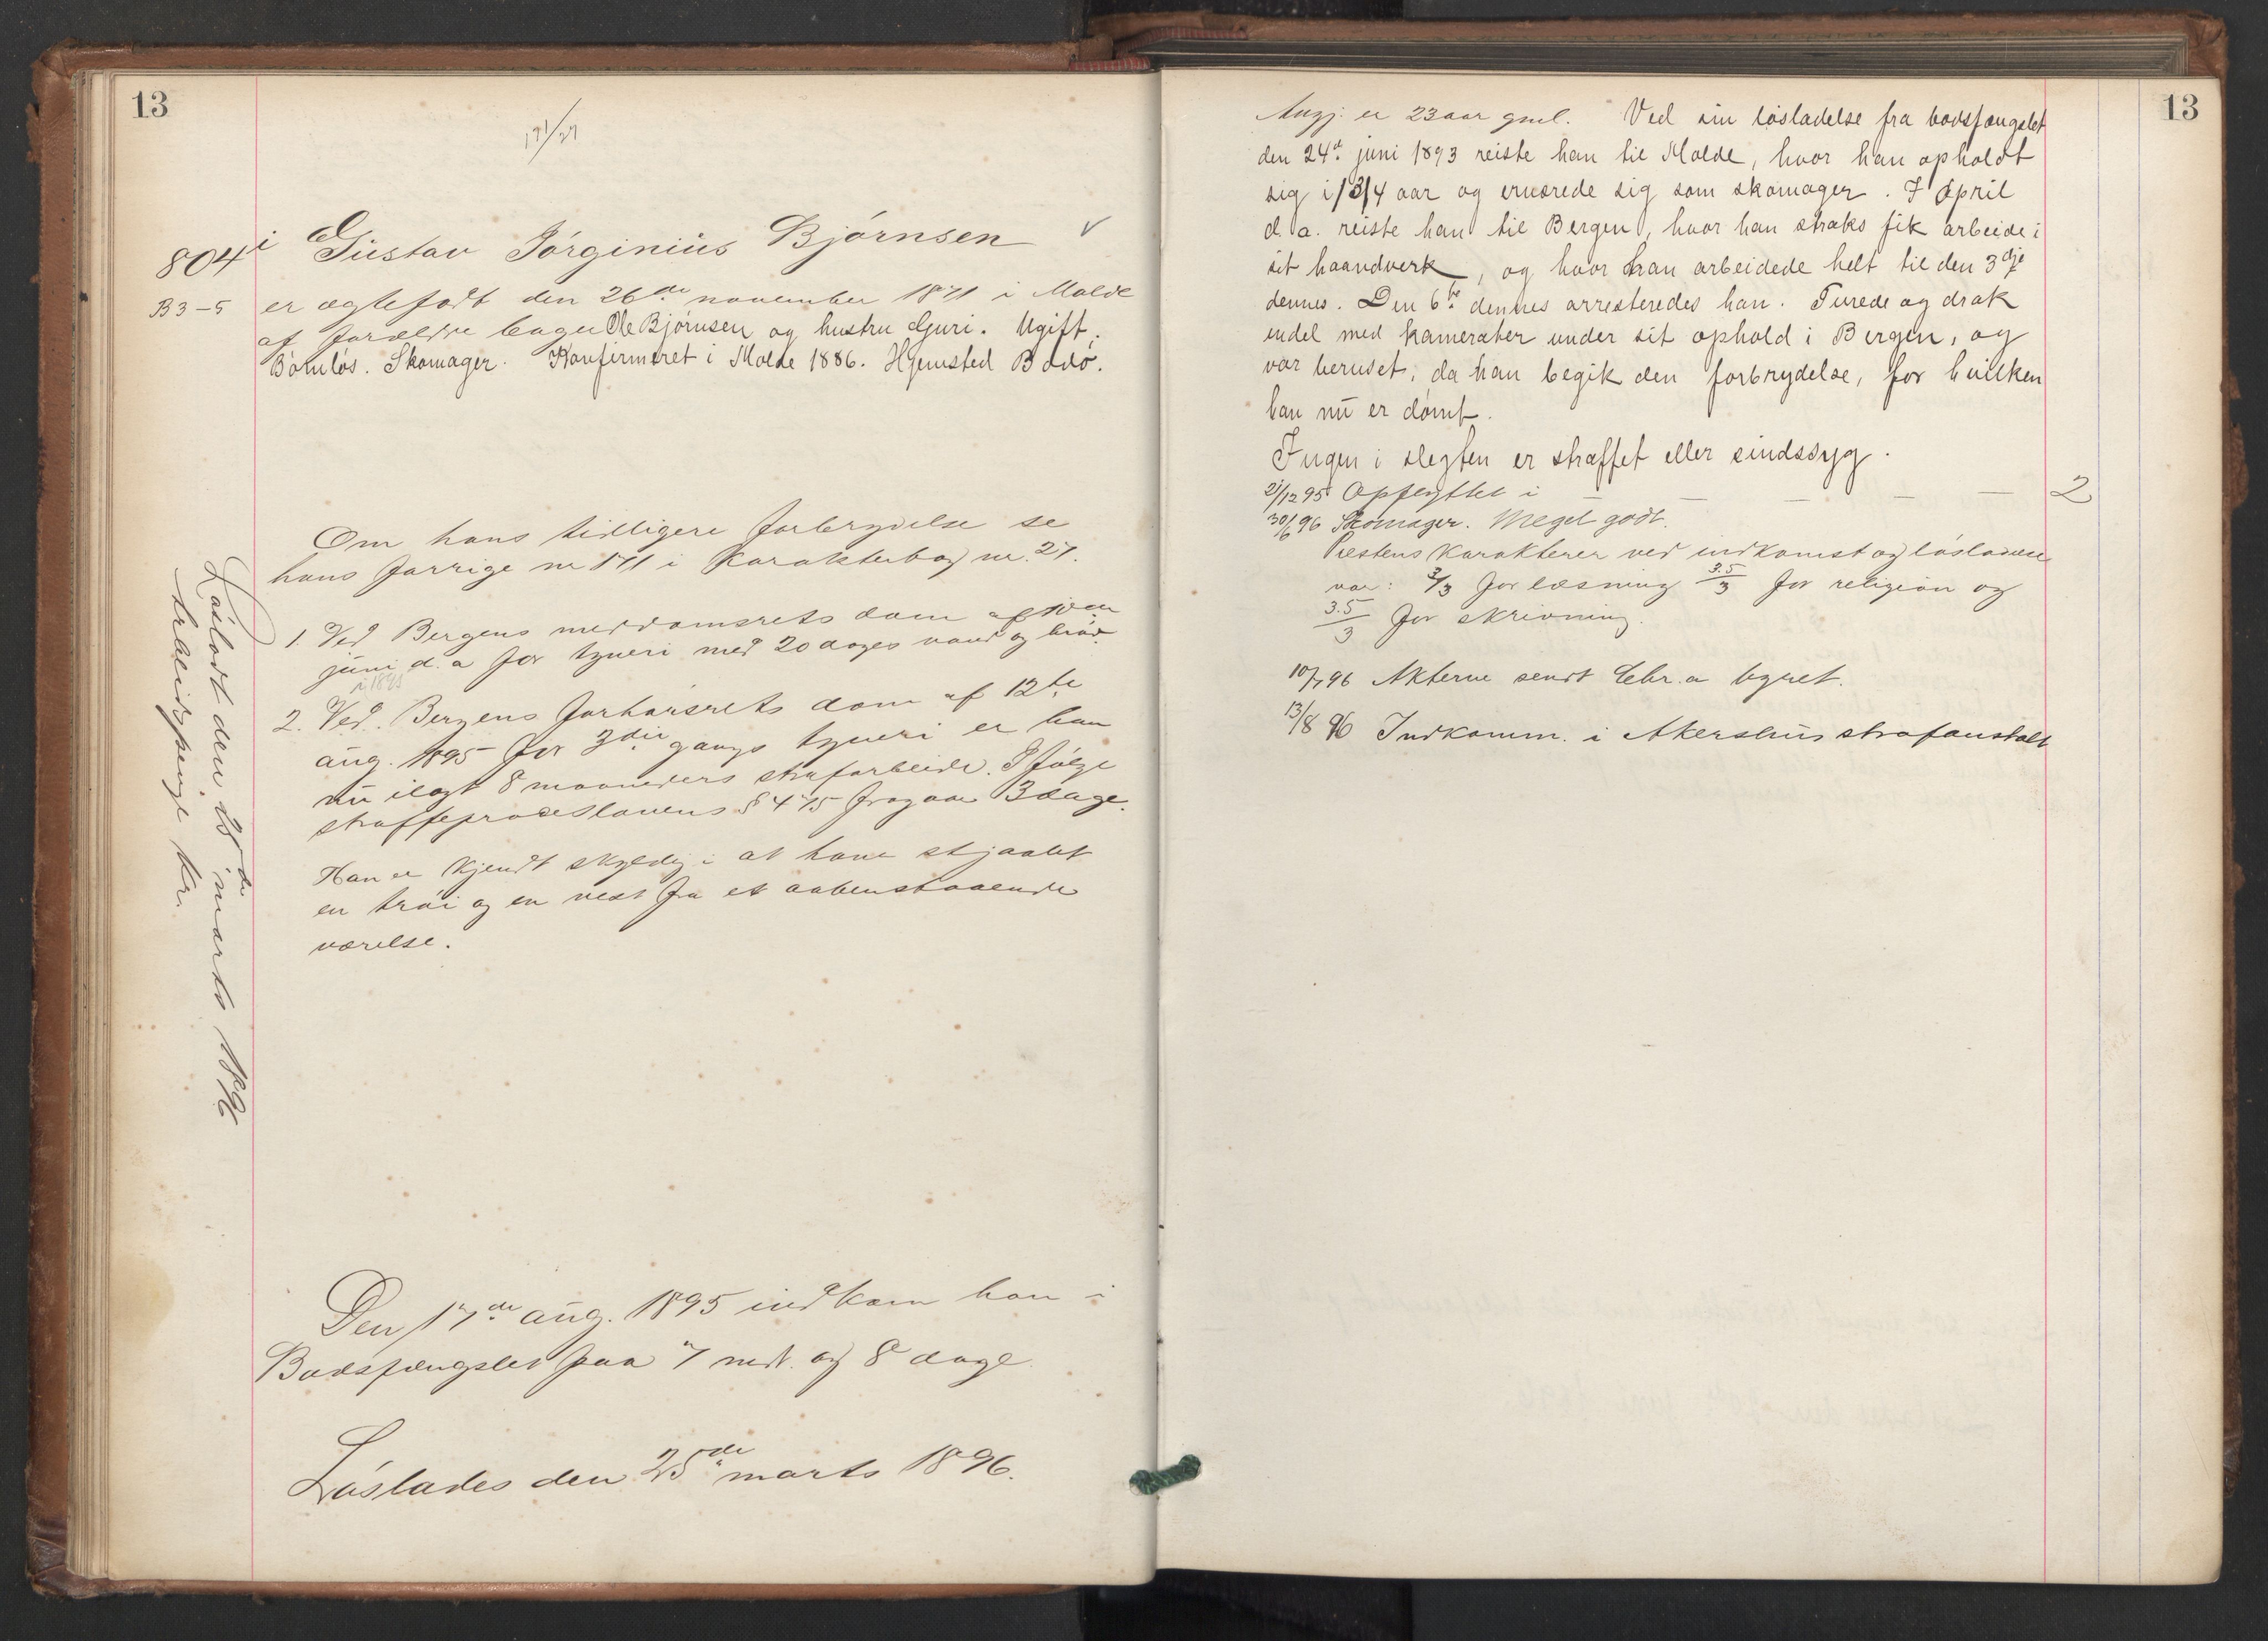 13
171/27
804 i Gustav Jørginius Bjørnsen v
B 3-5 er ægtefødt den 26de november 1871 i Molde
af forældre bager Ole Bjørnsen og hustru Guri. Ugift.
Barnløs. Skomager. Konfirmeret i Molde 1886. Hjemsted Bodø.
Om hans tidligere forbrydelse se
hans forrige nr 171 i Karakterbog nr. 27.
1. Ved Bergens meddomsrets dom af
juni d. a for tyveri med 20 dages vand og brød.
i 1895
2. Ved. Bergens forhørsrets dom af 12te
aug. 1895 for 3die gangs tyveri er han
nu ilagt 8 maaneders strafarbeide. I følge
straffeproceslovens § 475 fragaar dage.
Han er kjendt skyldig i at have stjaalet
en trøi og en vest fra et aabenstaaende
værelse.
Den 17de aug. 1895 indkom han i
Bodsfængslet paa 7 mdr. og 8 dage
Løslades den 25de marts 1896.
Løsladt den 25de marts 1896
Arbeidspenge kr.
13
Angj. er 23 aar gml. Ved sin løsladelse fra bodsfængslet
den 24d juni 1893 reiste han til Molde, hvor han opholdt
sig i 1 3/4 aar og ernærede sig som skomager. I April
d. a. reiste han til Bergen, hvor han straks fik arbeide i
sit haandverk, og hvor han arbeidede helt til den 3dje
dennes. Den 6te dennes arresteredes han. Turede og drak
endel med kamerater under sit ophold i Bergen, og
var beruset, da han begik den forbrydelse, for hvilken
han nu er dømt.
Ingen i slegten er straffet eller sindssyg.
21/12 95 Opflyttet i – – – – – 2
30/6 96 Skomager. Meget godt.
Prestens karakterer ved indkomst og løsladelse
var: 3/3 for læsning 3.5/3 for religion og
3.5/3 for skrivning.
10/7 96 Akterne sendt Chr.a byret.
13/8 96 Indkomm. i Akershus strafanstalt